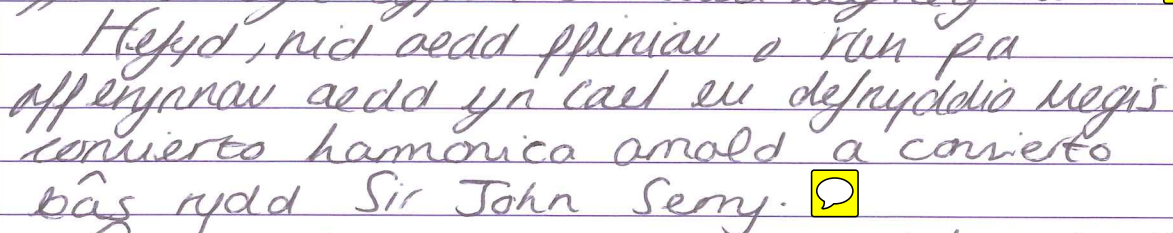 Hefyd, nid oedd ffiniau o ran pa
offerynnau oedd yn cael eu defnyddio megis
concierto harmonica arnold a concierto
bâs rydd Sir John Serry.